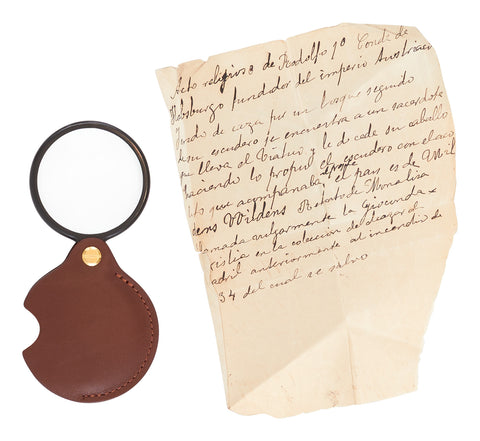 Acto religioso de Rodolfo 1º Conde de
Habsburgo fundador del imperio Austriaco
Yendo de caza por un bosque seguido
de su escudero se encuentra a un sacerdote
que lleva el Viatico y le da cede su caballo
haciendo lo propio el escudero con el aco
lito que acompañaba, epoca el pais es de Wil
dens Wildens Retrato de Mona Lisa
llamada vulgarmente la Gioconda x
existia en la coleccion del alcazar de
adrid anteriormente al incendio de
34 del cual se salvo